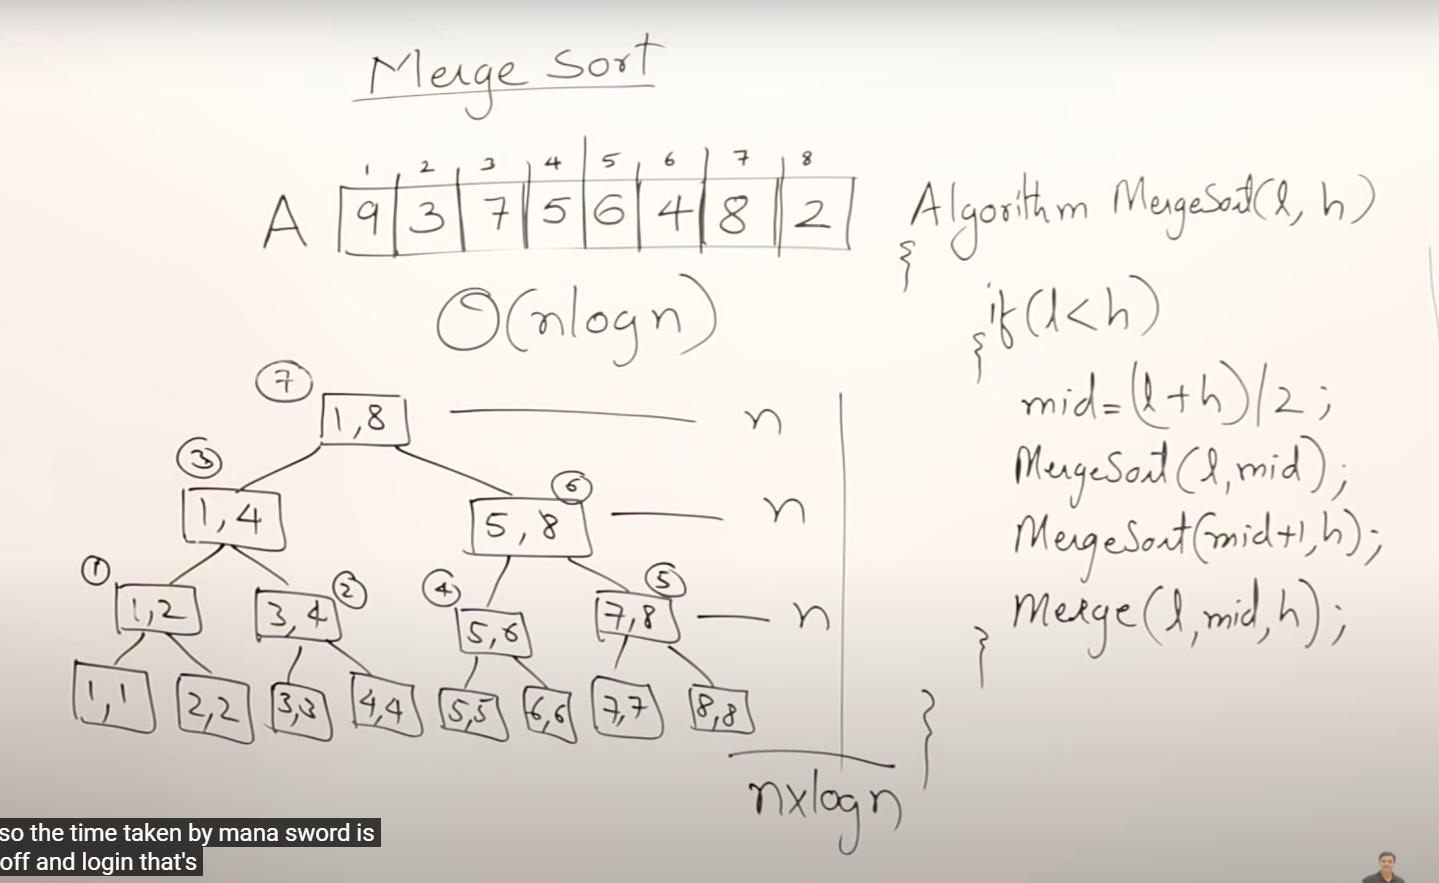 Merge Sort
1 2 3 4 5 6 7 8
A 9 3 7 5 6 4 8 2
O(nlogn)
7
1,8 n
3 6
1,4 5,8 n
1 2 4 5
1,2 3,4 5,6 7,8 n
1,1 2,2 3,3 4,4 5,5 6,6 7,7 8,8
nxlogn
Algorithm MergeSort(l, h)
{
if(l<h)
{
mid=(l+h)/2;
MergeSort(l,mid);
MergeSort(mid+1,h);
Merge(l,mid,h);
}
}
so the time taken by mana sword is
off and login that's